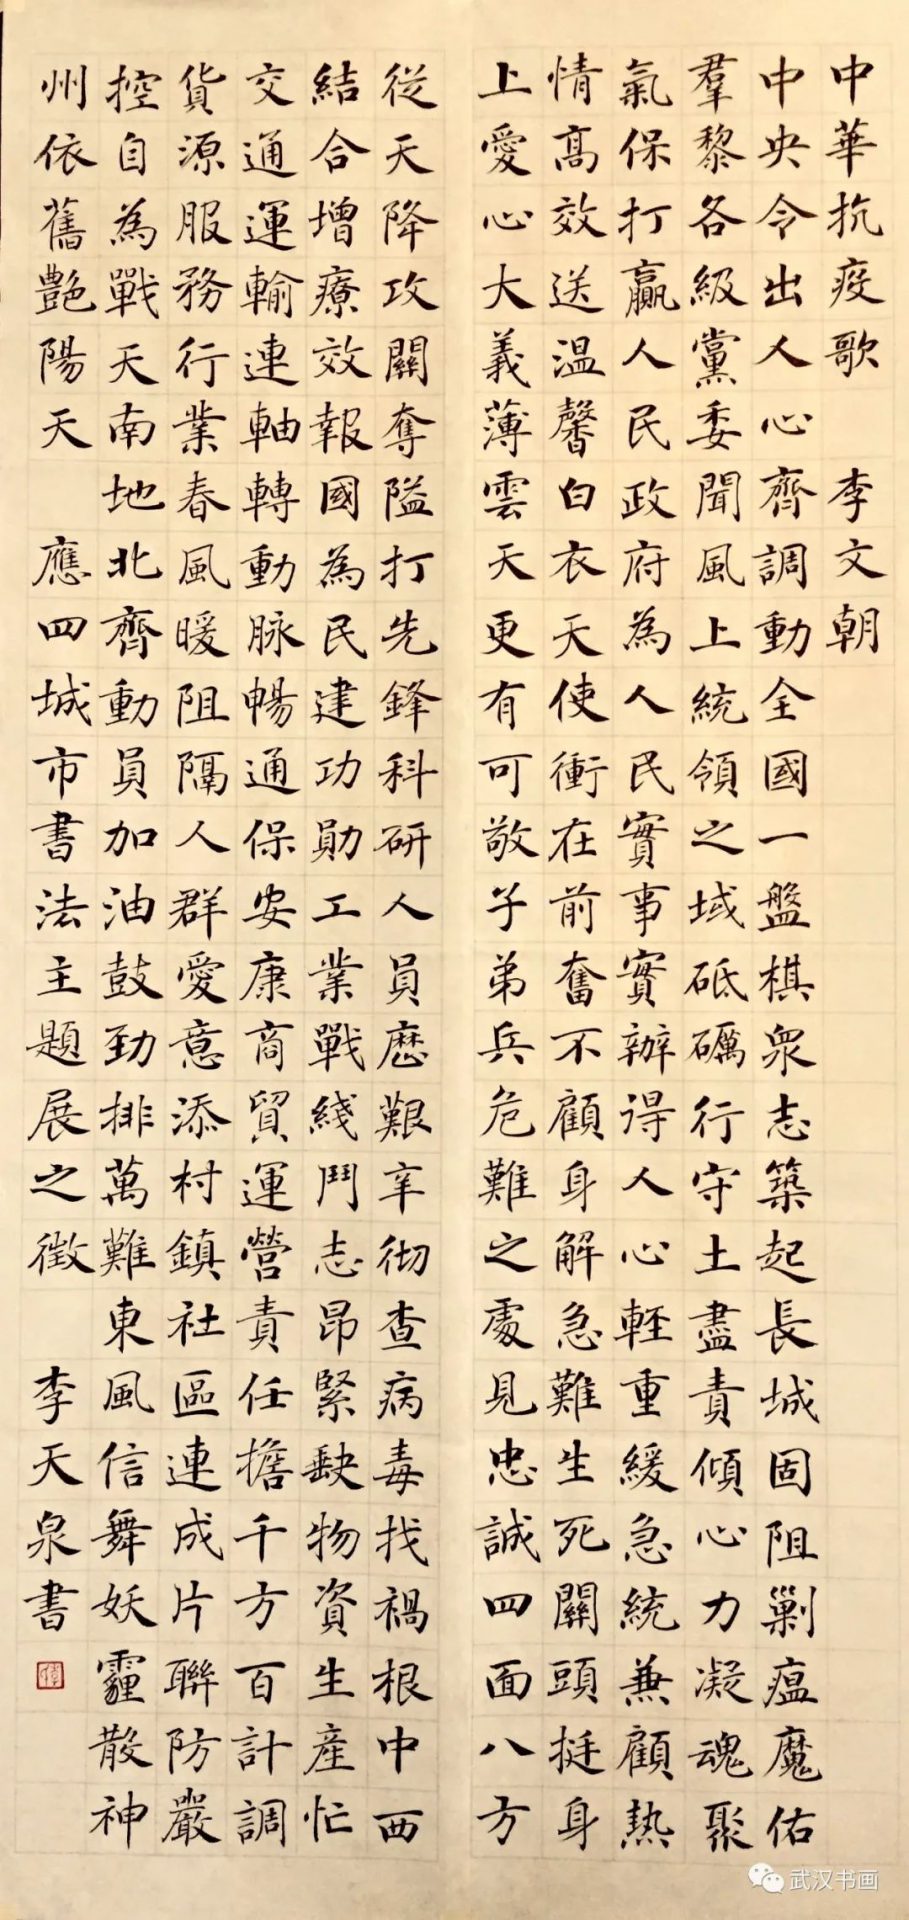 中華抗疫歌 李文朝
中央令出人心齊調動全國一盤棋衆志築起長城固阻剿瘟魔佑
羣黎各級黨委聞風上統領之域砥礪行守土盡責傾心力凝魂聚
氣保打贏人民政府為人民實事實辦得人心輕重緩急統兼顧熱
情高效送温馨白衣天使衝在前奮不顧身解急難生死關頭挺身
上愛心大義薄雲天更有可敬子弟兵危難之處見忠誠四面八方
從天降攻關奪隘打先鋒科研人員歷艱辛彻查病毒找禍根中西
結合增療效報國為民建功勛工業戰綫鬥志昂緊缺物資生產忙
交通運輸連軸轉動脉暢通保安康商貿運營責任擔千方百計調
貨源服務行業春風暖阻隔人群愛意添村鎮社區連成片聯防嚴
控自為戰天南地北齊動員加油鼓劲排萬難東風信舞妖霾散神
州依舊艷陽天 應四城市書法主題展之徵 李天泉書
武汉书画